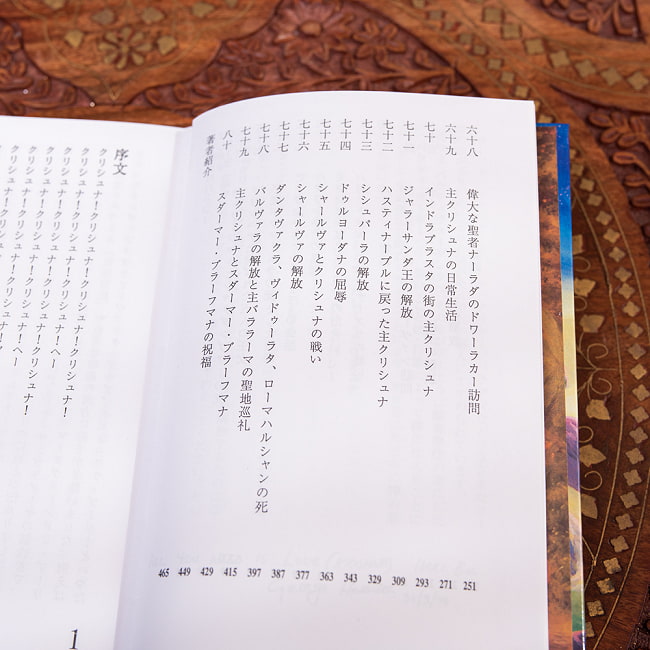 六十八 偉大な聖者ナーラダのドワーラカー訪問 251
六十九 主クリシュナの日常生活 271
七十 インドラプラスタの街の主クリシュナ 293
七十一 ジャラーサンダ王の解放 309
七十二 ハスティナープルに戻った主クリシュナ 329
七十三 シシュパーラの解放 343
七十四 ドゥルヨーダナの屈辱 363
七十五 シャールヴァとクリシュナの戦い 377
七十六 シャールヴァの解放 387
七十七 ダンタヴァクラ、ヴィドゥーラタ、ローマハルシャンの死 397
七十八 バルヴァラの解放と主バララーマの聖地巡礼 415
七十九 主クリシュナとスダーマー・ブラーフマナ 429
八十 スダーマー・ブラーフマナの祝福 449
著者紹介 465
序文
クリシュナ！
クリシュナ！クリシュナ！
クリシュナ！クリシュナ！クリシュナ！
クリシュナ！クリシュナ！ヘー
クリシュナ！クリシュナ！クリシュナ！
クリシュナ！クリシュナ！ヘー
1